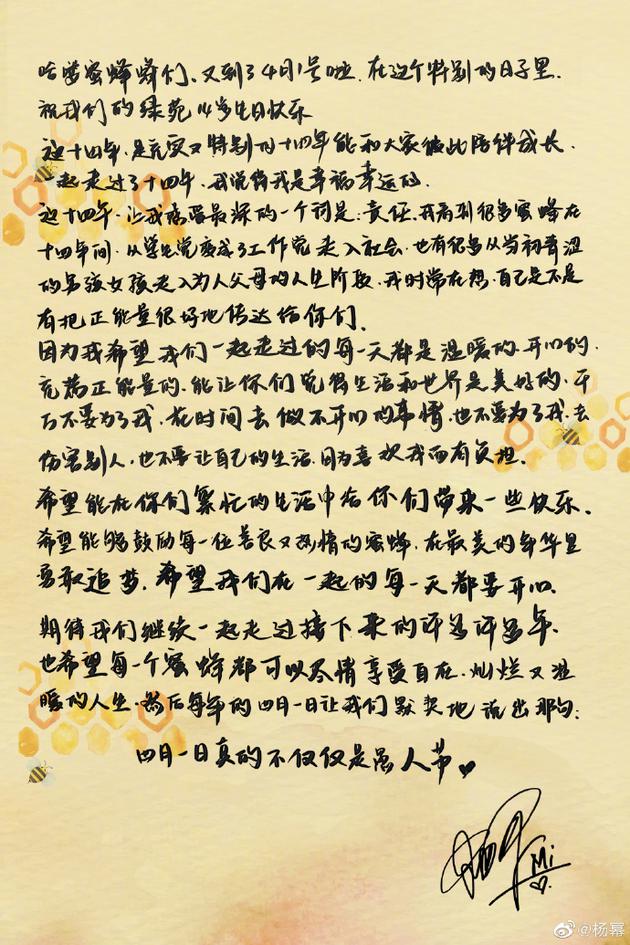 哈喽蜜蜂蜂们、又到了4月1号啦、在这个特别的日子里、
祝我们的绿苑14岁生日快乐
这十四年、是充实又特别的十四年能和大家彼此陪伴成长、
一起走过了十四年、我觉得我是幸福幸运的、
这十四年、让我感受最深的一个词是：责任、我看到很多蜜蜂在
十四年间、从学生党变成了工作党走入社会、也有很多从当初青涩
的男孩女孩走入为人父母的人生阶段、我时常在想、自己是不是
有把正能量很好地传达给你们、
因为我希望我们一起走过的每一天都是温暖的、开心的、
充满正能量的、能让你们觉得生活和世界是美好的、千
万不要为了我、花时间去做不开心的事情、也不要为了我、去
伤害别人、也不要让自己的生活、因为喜欢我而有负担、
希望能在你们繁忙的生活中给你们带来一些快乐、
希望能够鼓励每一位善良又热情的蜜蜂、在最美的年华里
勇敢追梦、希望我们在一起的每一天都要开心、
期待我们继续一起走过接下来的许多许多年、
也希望每一个蜜蜂都可以尽情享受自在、灿烂又温
暖的人生、然后每年的四月一日让我们默契地说出那句：
四月一日真的不仅仅是愚人节♥
杨幂
Mi
@杨幂